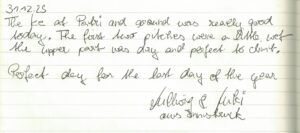 31.12.25
The ice at Pitzi and ground was really good
today. The four two pitches were a little wet
the upper part was day and perfect to climb.
Perfect day for the last day of the year
& Kiki
aus Innsbruck